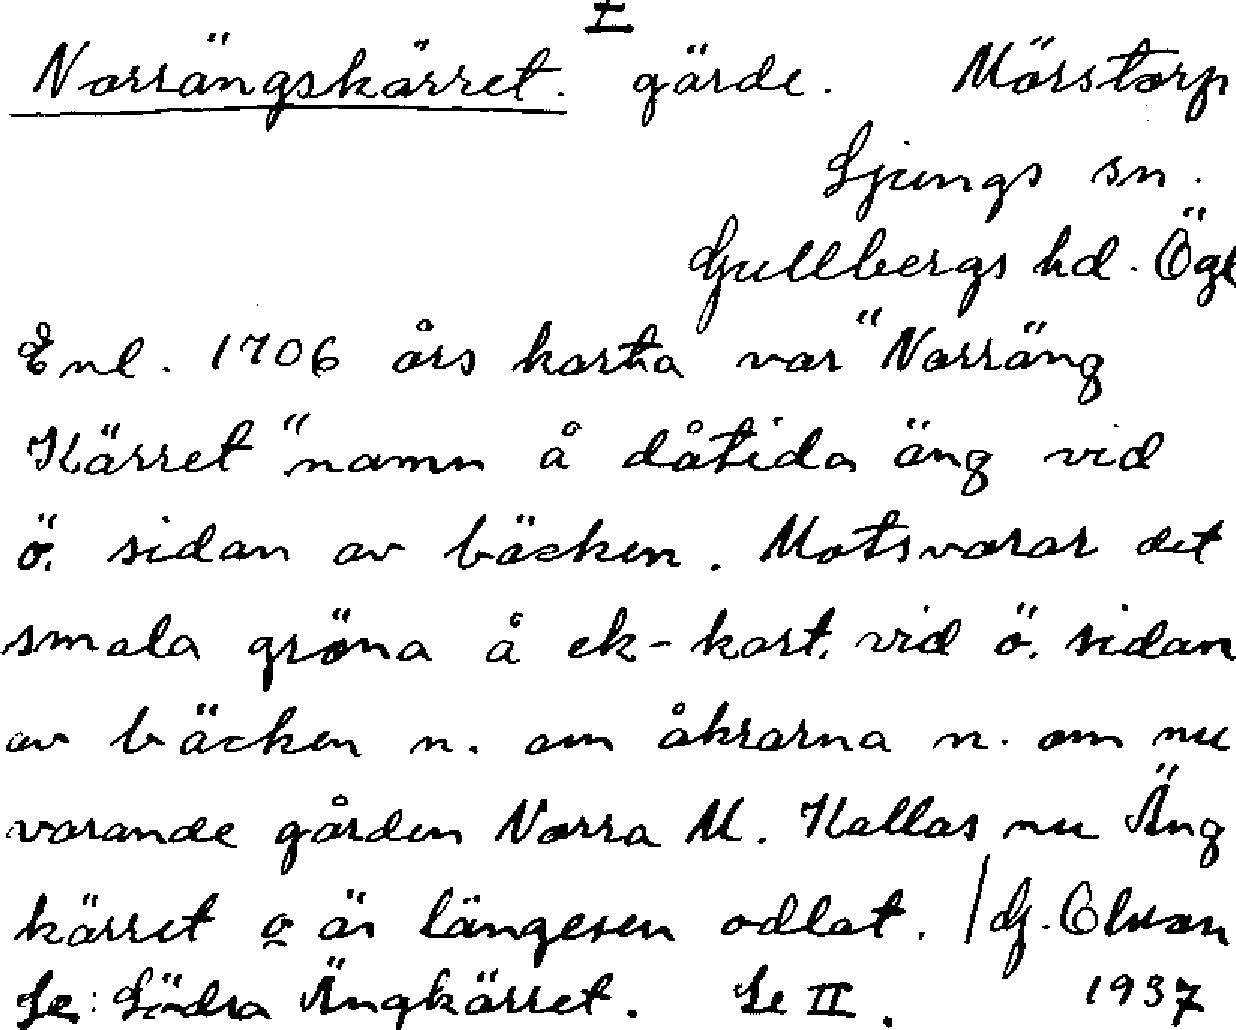 I
Norrängskärret. gärde. Mörstorp
Ljungs sn.
Gullbergs hd. Ögl
Enl. 1706 års karta var "Norräng
Kärret" namn å dåtida äng vid
ö. sidan av bäcken. Motsvarar det
smala gröna å ek-kart. vid ö. sidan
av bäcken n. om åkrarna n. om nu
varande gården Norra M. Kallas nu Äng
kärret o är längesen odlat. /G. Olson
Se: Södra Ängkärret. Se II. 1937